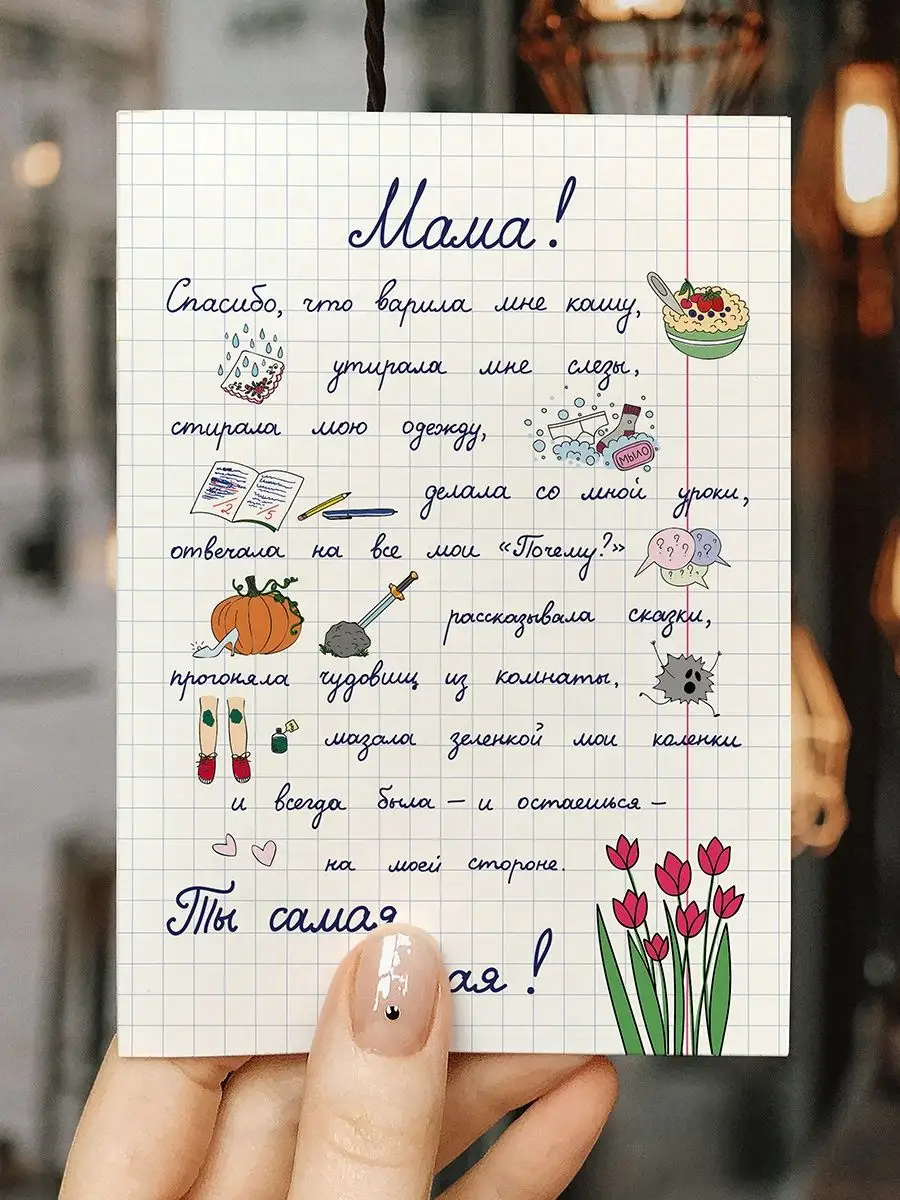 Мама!
Спасибо, что варила мне кашу,
утирала мне слезы,
стирала мою одежду,
МЫЛО
/2 /5
делала со мной уроки,
отвечала на все мои «Почему?»
? ? ? ? ? ? ? ? ? ?
рассказывала сказки,
прогоняла чудовищ из комнаты,
мазала зеленкой мои коленки
и всегда была – и остаешься –
на моей стороне.
Ты самая
!